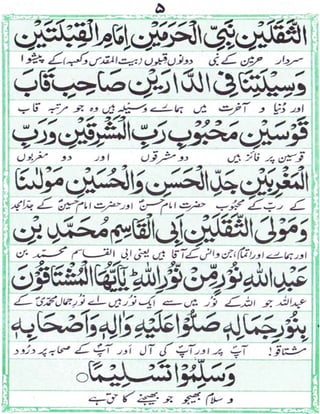 ۵
الثَّقَلَيْنِ نَبِيِّ الْحَرَمَيْنِ اِمَامِ الْقِبْلَتَيْنِ
سردار حرمین کے نبی دونوں قبلوں (بیت المقدس و کعبہ) کے پیشوا
وَسِيْلَتِنَا فِي الدَّارَيْنِ صَاحِبِ قَابَ
اور دنیا و آخرت میں ہمارے وسیلہ ہیں وہ جو مرتبہ قاب
قَوْسَيْنِ مَحْبُوْبِ رَبِّ الْمَشْرِقَيْنِ وَرَبِّ
قوسین پر فائز ہیں دو مشرقوں اور دو مغربوں
الْمَغْرِبَيْنِ جَدِّ الْحَسَنِ وَالْحُسَيْنِ مَوْلٰىنَا
کے رب کے محبوب حضرت امام حسنؓ اور حضرت امام حسینؓ کے جد امجد
وَمَوْلَى الثَّقَلَيْنِ اَبِي الْقَاسِمِ مُحَمَّدِ بْنِ
اور ہمارے اور (تمام) جن و انس کے آقا ہیں یعنی ابی القاسم محمد بن
عَبْدِ اللّٰهِ نُوْرٍ مِّنْ نُّوْرِ اللّٰهِ يٰٓاَيُّهَا الْمُشْتَاقُوْنَ
عبداللہ جو اللہ کے نور میں سے ایک نور ہیں اے نور جمال محمدی کے
بِنُوْرِ جَمَالِهٖ صَلُّوْا عَلَيْهِ وَاٰلِهٖ وَاَصْحَابِهٖ
مشتاقو! آپ پر اور آپ کی آل اور آپ کے صحابہ پر درود
وَسَلِّمُوْا تَسْلِيْمًا ○
و سلام بھیجو جو بھیجنے کا حق ہے